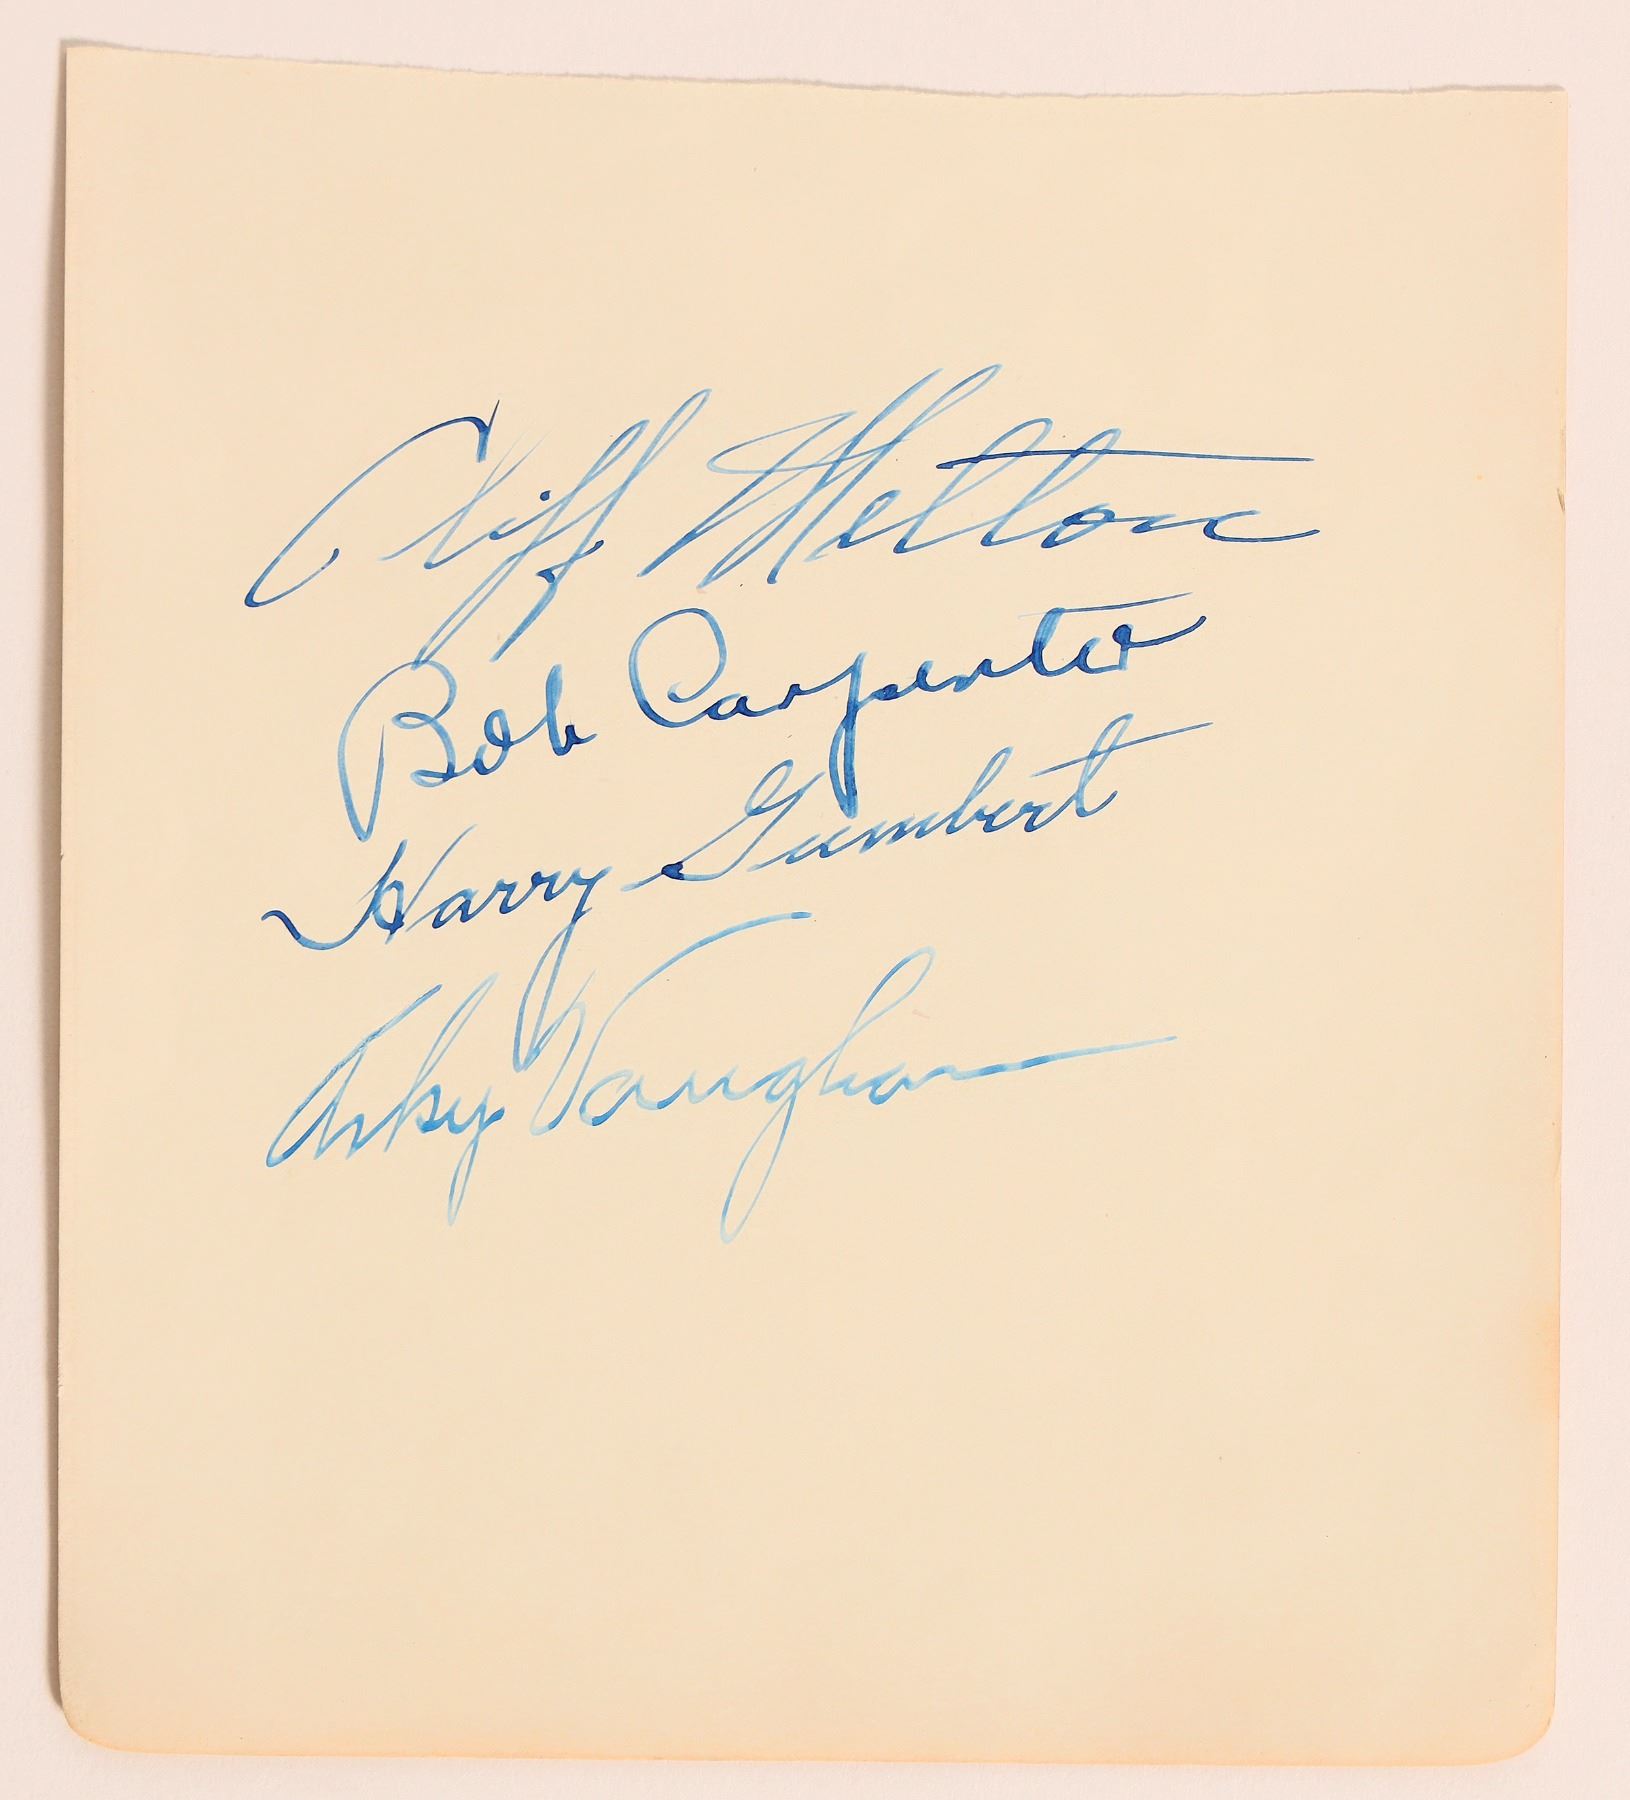 Cliff Melton
Bob Carpenter
Harry Gumbert
Arky Vaughan